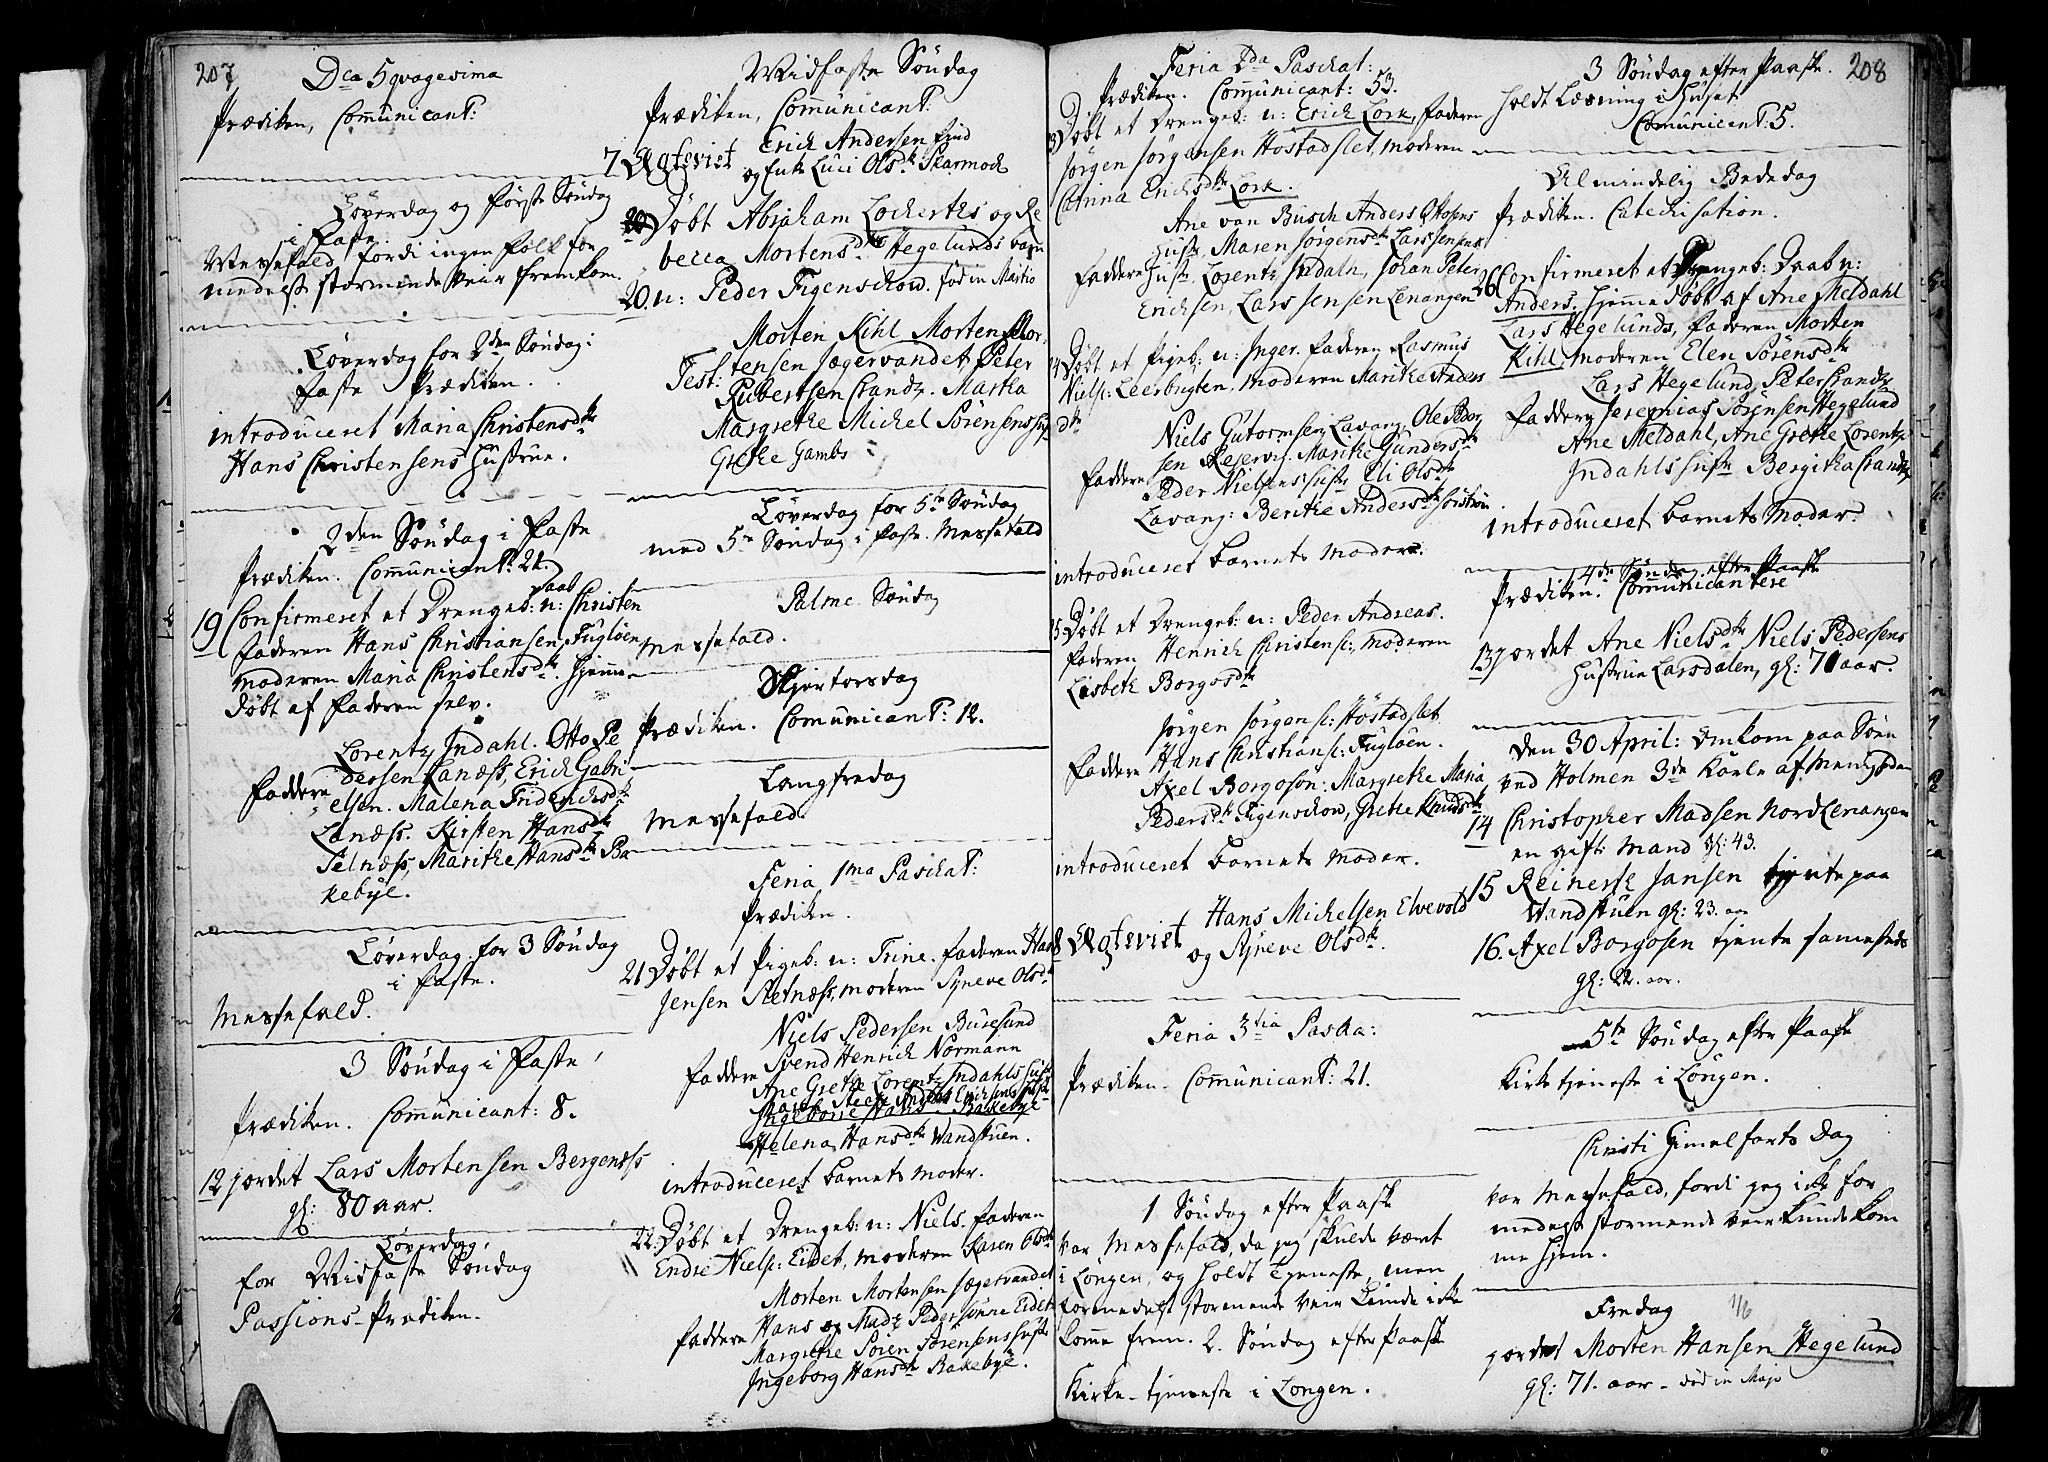 207
Dca 5qvagesima
Prædiken, Com̄unicant:
Löverdag og Første Söndag
i Faste
Messefald fordi ingen Folk for
medelst stormende Veir fremkom.
Löverdag for 2den Söndag i
Faste Prædiken.
introduceret Maria Christensdtr
Hans Christensens Hustrue.
2den Söndag i Faste
Prædiken. Com̄unicant: 21.
19 Confirmeret et Drengeb: Daab n: Christen
Faderen Hans Christiansen Fugløen
Moderen Maria Christensdtr. hjemme
døbt af Faderen selv.
Lorentz Indahl. Otto Pe
dersen Lanæss, Erich Gabri
Faddere
elsen. Malena Friderichsdtr
Lanæss. Kirsten Hansdtr
Selnæss, Marithe Hansdtr Ba
kebye.
Löverdag for 3 Söndag
i Faste.
Messefald.
3 Söndag i Faste
Prædiken. Com̄unicant: 8.
12 jordet Lars Mortensen Bergenæss
gl: 80 aar.
Löverdag
for Midfaste Söndag
Passions-Prædiken.
Midfaste Söndag
Prædiken, Com̄unicant:
7 Egteviet Erich Andersen Find
og Enke Luci Olsdtr Skarmoch
20 Döbt Abraham Lockerths og Re
becca Mortensdtr Hegelunds barn
20. n: Peder Figenschow. fød in Martio
Morten Kihl Morten Mor
Test: tensen Jægervandet, Peter
Rubertsen Crandz. Martha
Margrethe Michel Sörensens Hustr
Grethe Gambs
Löverdag for 5te Söndag
med 5te Söndag i Faste. Messefald
Palme Söndag
Messefald.
Skjertorsdag
Prædiken. Com̄unicant: 12.
Langfredag
Messefald.
Feria 1ma Paschat:
Prædiken.
21 Döbt et Pigeb: n: Trine. Faderen Hans
Jensen Sletnæss, Moderen Syneve Olsdtr
Niels Pedersen Buresund
Faddere Svend Henrich Normann
Ane Grethe Lorentz Indahls Hustr
Ingeborre Hansdtr Bakebye
Helena Hansdtr Vandstuen.
introduceret Barnets Moder.
22. Döbt et Drengeb: n: Niels. Faderen
Endre Niels: Eidet, Moderen Karen Olsdtr
Morten Mortensen Jægervandet
Faddere Hans og Madz Peder sönner Eidet
Margrethe Sören Sörensens Hustr
Ingeborg Hansdtr Bakebye.
Feria 2da Paschat:
Prædiken. Com̄unicant: 53.
Döbt et Drengeb: n: Erich Lork, Faderen
Jörgen Jörgensen Höstadslet, Moderen
Catrina Erichsdtr Lork.
Ane van Busch Anders Ottosens
Hustr, Maren Jörgensdtr Lars Jensens
Faddere Hustr, Lorentz Indahl, Johan Peter
Erichsen, Lars Jensen Lenangen
Döbt et Pigeb: n: Inger. Faderen Rasmus
Niels: Leerbugten. Moderen Marithe Anders
dtr
Niels Gutormsen Lavang, Ole Peder
sen Reservis. Marithe Gundersdtr
Faddere
Peder Nielsens Hustr Eli Olsdtr
Lavang: Berithe Andersdtr
introduceret Barnets Moder.
Döbt et Drengeb: n: Peder Andreas.
Faderen Henrich Christens:, Moderen
Lisbeth Borgosdtr
Jörgen Jörgens: Höstadslet
Hans Christians: Fugløen.
Faddere
Axel Borgoson: Margrethe Maria
Pedersdtr Figenschow, Grethe Knudsdtr
introduceret Barnets Moder.
8 Egteviet Hans Michelsen Elvevold
og Syneve Olsdtr.
Feria 3tia Pascha:
Prædiken. Com̄unicant: 21.
1 Söndag efter Paaske
var Messefald, da jeg skulde været
i Longen, og holdt Tjeneste, men
formedelst stormende Veir kunde icke
komme frem. 2. Söndag efter Paaske
Kirke-tjeneste i Longen.
3 Söndag efter Paaske.
208
holdt Læsning i Huset
Com̄unicant. 5.
Almindelig Bededag
Prædiken. Catechisation.
26 Confirmeret et Drengeb: Daab n:
Anders, hjemme døbt af Ane Meldahl
Lars Hegelunds, Faderen Morten
Kihl, Moderen Elen Sörensdtr
Lars Hegelund, Peter Crandz
Faddere Jeremias Sörensen Hegelund
Ane Meldahl, Ane Grethe Lorentz
Indahls Hustr Bergitha Crandtz
introduceret Barnets Moder.
4de Söndag efter Paaske
Prædiken. Com̄unicantere
13 jordet Ane Nielsdtr Niels Pedersens
Hustrue Larsdalen, gl: 71 aar.
Den 30 April: omkom paa Söen
ved Holmen 3de Karle af Menigheden
14 Christopher Madsen Nord Lenangen
en gift Mand gl: 43.
15 Reinert Jansen tjente paa
Vandstuen gl: 23. aar
16. Axel Borgosen tjente samesteds
gl: 22. aar.
5te Söndag efter Paaske
Kirketjeneste i Longen.
Christi Himelfarts Dag
var Messefald, fordi jeg icke for
medelst stormende Veir kunde kom
me hjem.
Fredag 1/6
jordet Morten Hansen Hegelund
gl: 71. aar - död in Majo